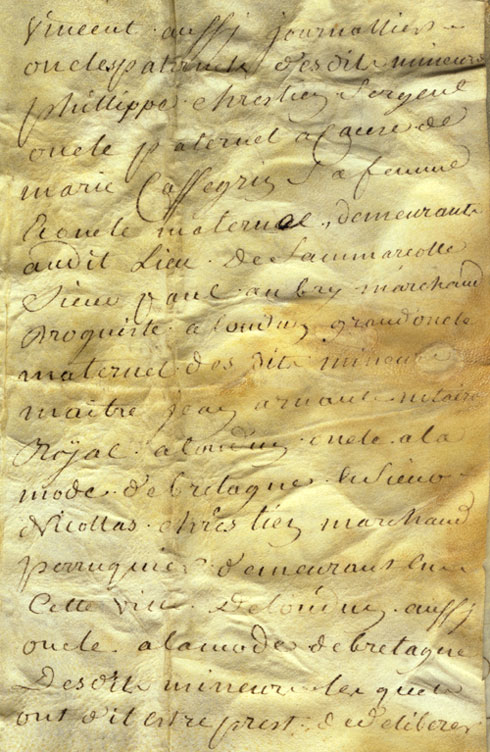 vincent aussy journallier
oncles paternels desdits mineurs
phillippe chrestien sergent
oncle paternel a cause de
marie Caffegrin sa femme
& oncle maternel, demeurants
audit Lieu de Sammarcolle
Sieur paul aubry marchand
droquiste a loudun grand oncle
maternel desdits mineurs
maitre jean arnault notaire
Royal a loudun oncle a la
mode de bretagne le sieur
Nicollas chrestien marchand
perruquier demeurant en
Cette ville De loudun aussy
oncle a la mode de bretagne
Desdits mineurs lesquels
ont dit estre prest de deliberer